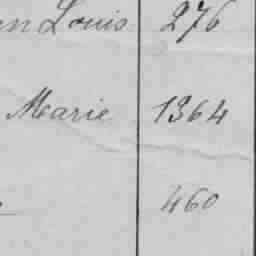 Louis 276
Marie 1364
460